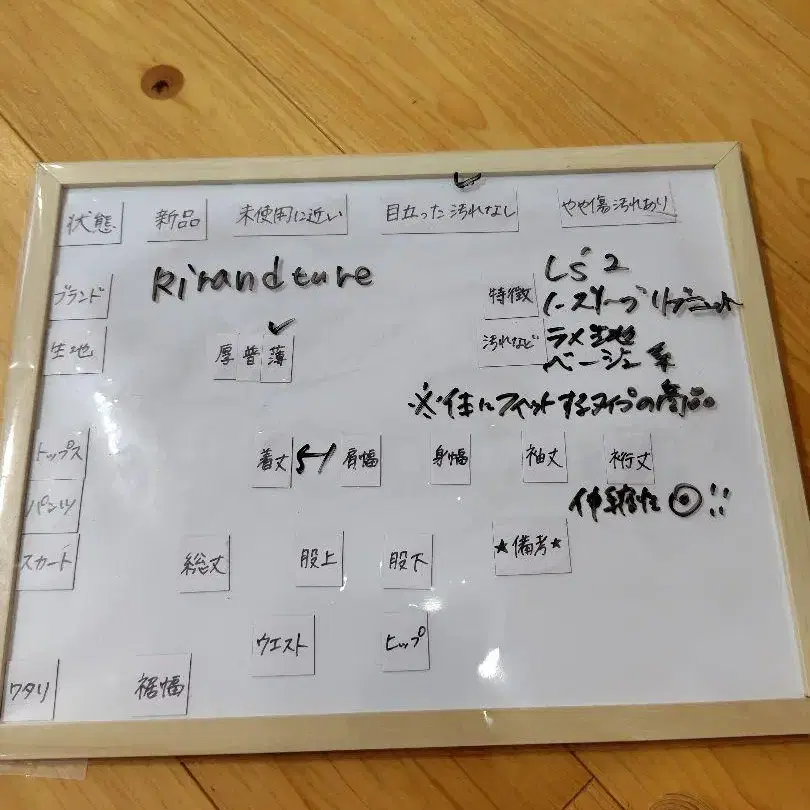 状態 新品 未使用に近い 目立った汚れなし やや傷汚れあり
ブランド Rirandture 特徴 Ls2
ノースリーブリブニット
生地 厚 普 薄 ✓ 汚れなど ラメ生地
ベージュ系
※体にフィットするタイプの商品。
トップス 着丈 51 肩幅 身幅 袖丈 裄丈
パンツ 伸縮性◎!!
スカート 総丈 股上 股下 ★備考★
ウエスト ヒップ
ワタリ 裾幅